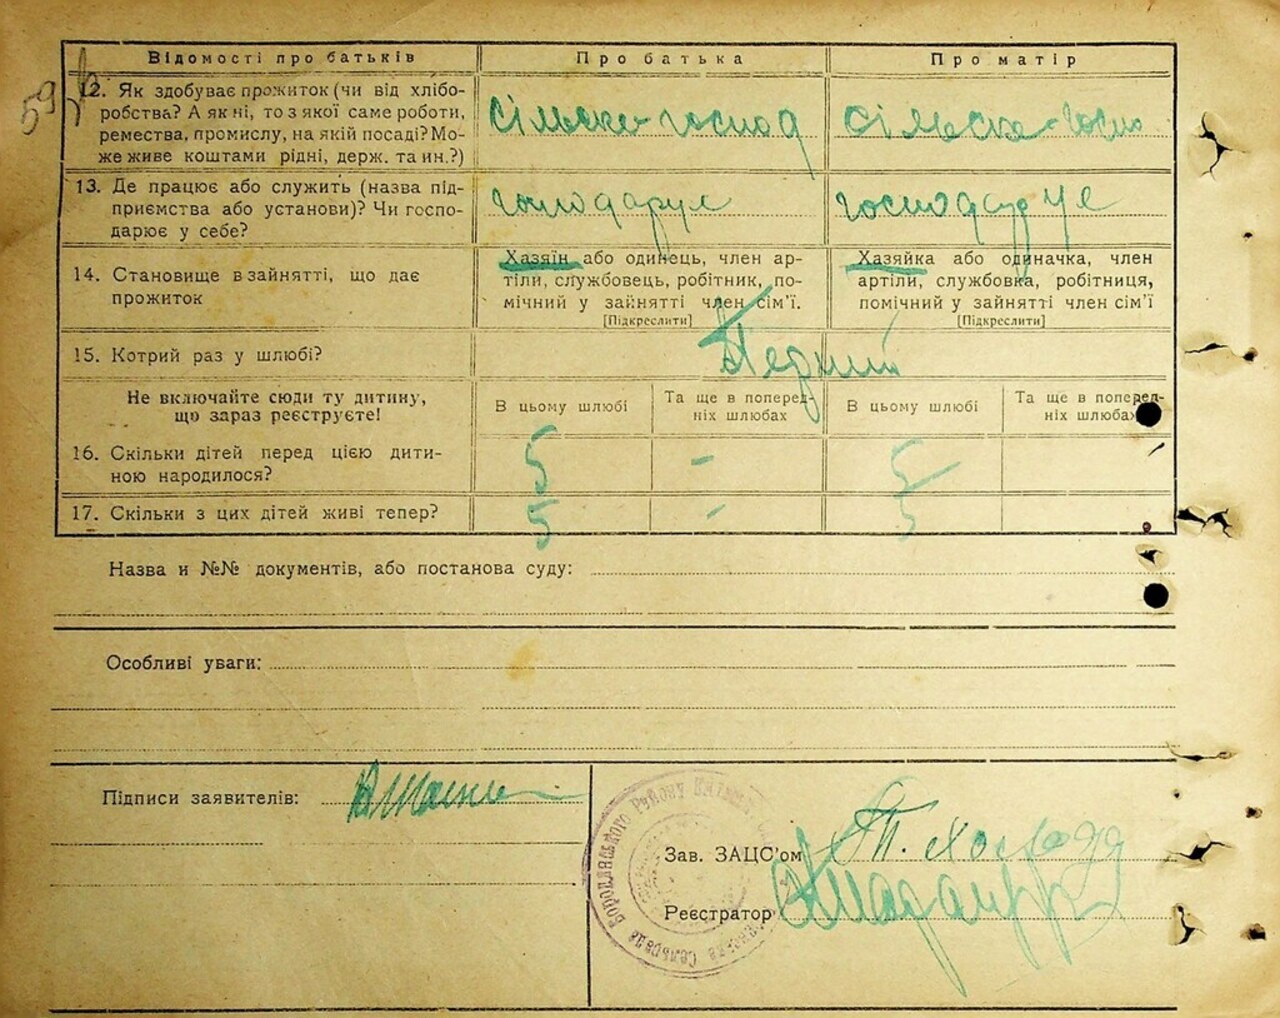 59
Відомості про батьків
Про батька
Про матір
12. Як здобуває прожиток (чи від хлібо-
робства? А як ні, то з якої саме роботи,
ремества, промислу, на якій посаді? Мо-
же живе коштами рідні, держ. та ин.?)
сільське-господ
сільське-госпо
13. Де працює або служить (назва під-
приємства або установи)? Чи госпо-
дарює у себе?
господарує
господарує
14. Становище в зайнятті, що дає
прожиток
Хазяїн або одинець, член ар-
тілі, службовець, робітник, по-
мічний у зайнятті член сім'ї.
[Підкреслити]
Хазяйка або одиначка, член
артілі, службовка, робітниця,
помічний у зайнятті член сім'ї
[Підкреслити]
15. Котрий раз у шлюбі?
Не включайте сюди ту дитину,
що зараз реєструєте!
В цьому шлюбі
Та ще в поперед-
ніх шлюбах
В цьому шлюбі
Та ще в поперед-
ніх шлюбах
16. Скільки дітей перед цією дити-
ною народилося?
5
-
5
17. Скільки з цих дітей живі тепер?
5
-
5
Назва и №№ документів, або постанова суду:
Особливі уваги:
Підписи заявителів:
Бородянського Району
Зав. ЗАЦС'ом
Реєстратор